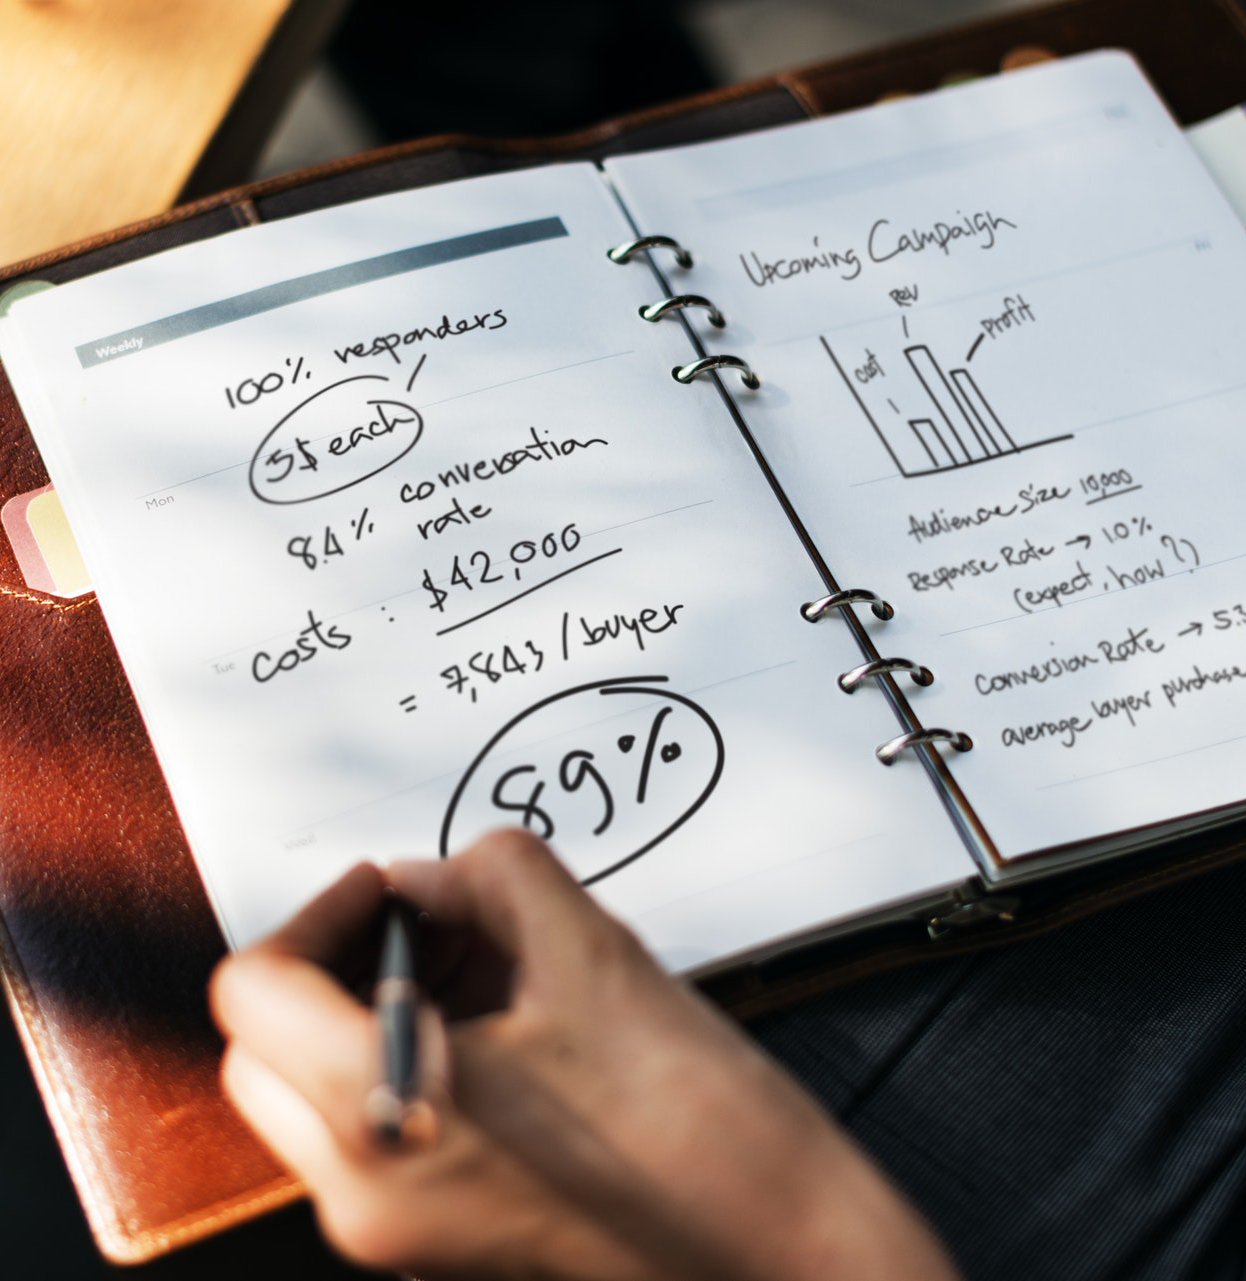 Weekly
100% responders
5$ each
8.4% conversation
rate
costs : $42,000
= 7,843 / buyer
89%
Mon
Tue
Wed
Upcoming Campaign
Rev
Profit
cost
Audience Size 10,000
Response Rate → 1.0%
(expect, how?)
Conversion Rate → 5.3
average buyer purchase